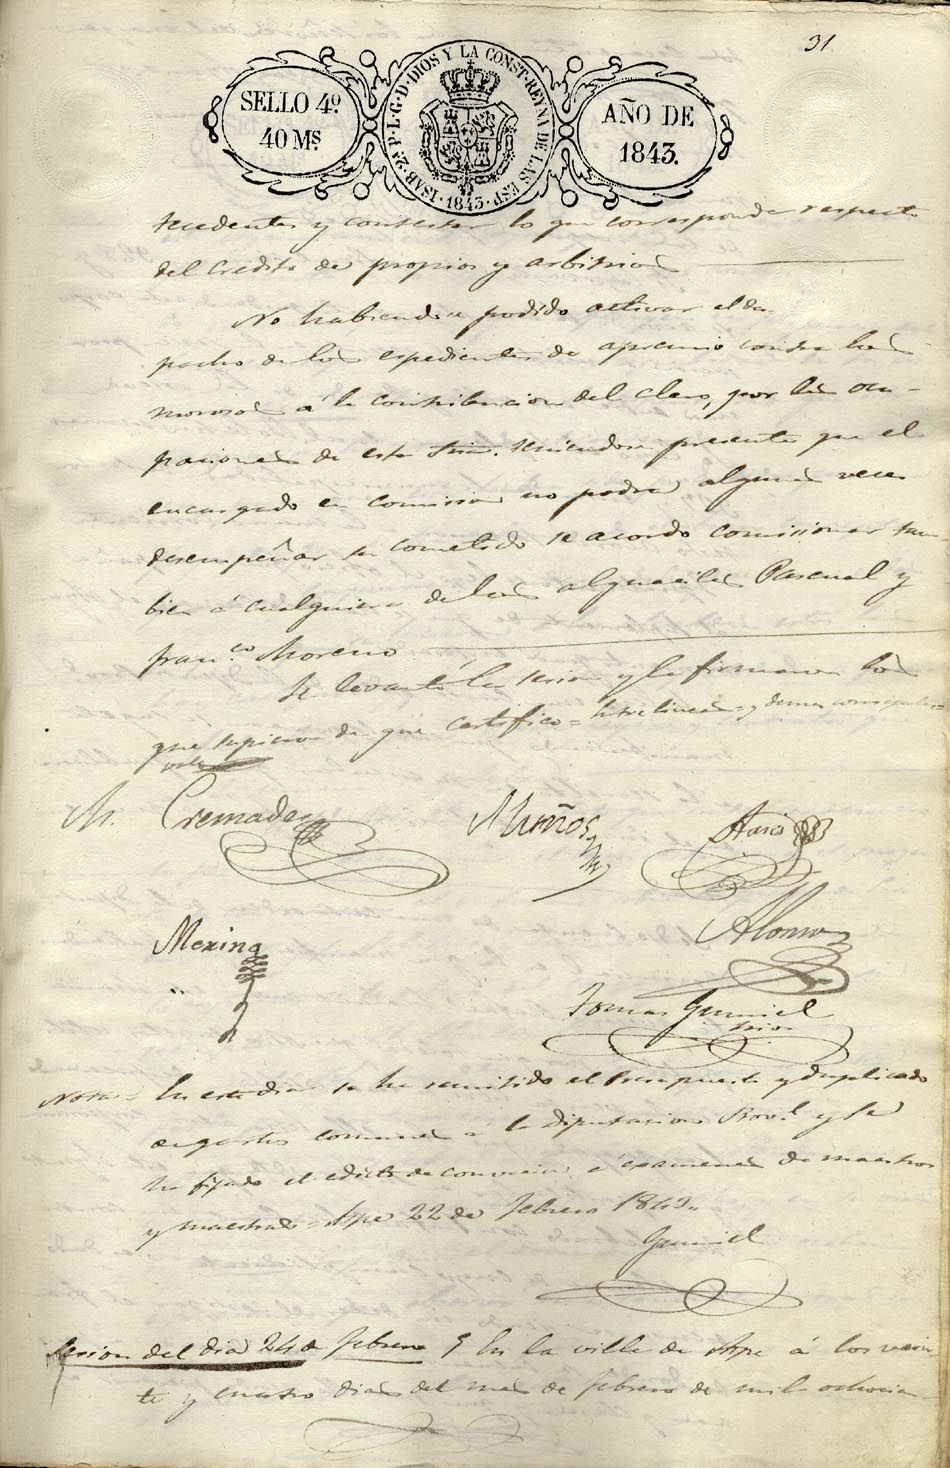 31
SELLO 4º
40 Ms.
ISAB. 2ª P. L. G. D. DIOS Y LA CONST. REYNA DE LAS ESP.
1843
AÑO DE
1843.
tecedentes y contestar lo que corresponda respecto
del credito de propios y arbitrios
No habiendose podido activar el des
pacho de los espedientes de apremio contra los
morosos á la contribucion del clero, por las ocu-
paciones de esta Sria. teniendose presente que el
encargado en comision no podra algunas veces
desempeñar su cometido se acordo comisionar tam-
bien á cualquiera de los alguaciles Pascual y
Franco. Moreno
Se levantó la sesion y la firmaron los
que supieron de que certifico = Entre lineas = y demas concejales =
vale
M. Cremades
Muños
Asris
Merina
Alonso
Tomas Gumiel
Srio
Nota = En este dia se ha remitido el Presupuesto y duplicado
de gastos comunes á la Diputacion Provl. y se
ha fijado el edicto de á examenes de maestros
y maestras = Aspe 22 de febrero 1843.
Gumiel
Sesion del dia 24 de febrero En la villa de Aspe á los vein-
te y cuatro dias del mes de febrero de mil ochocien